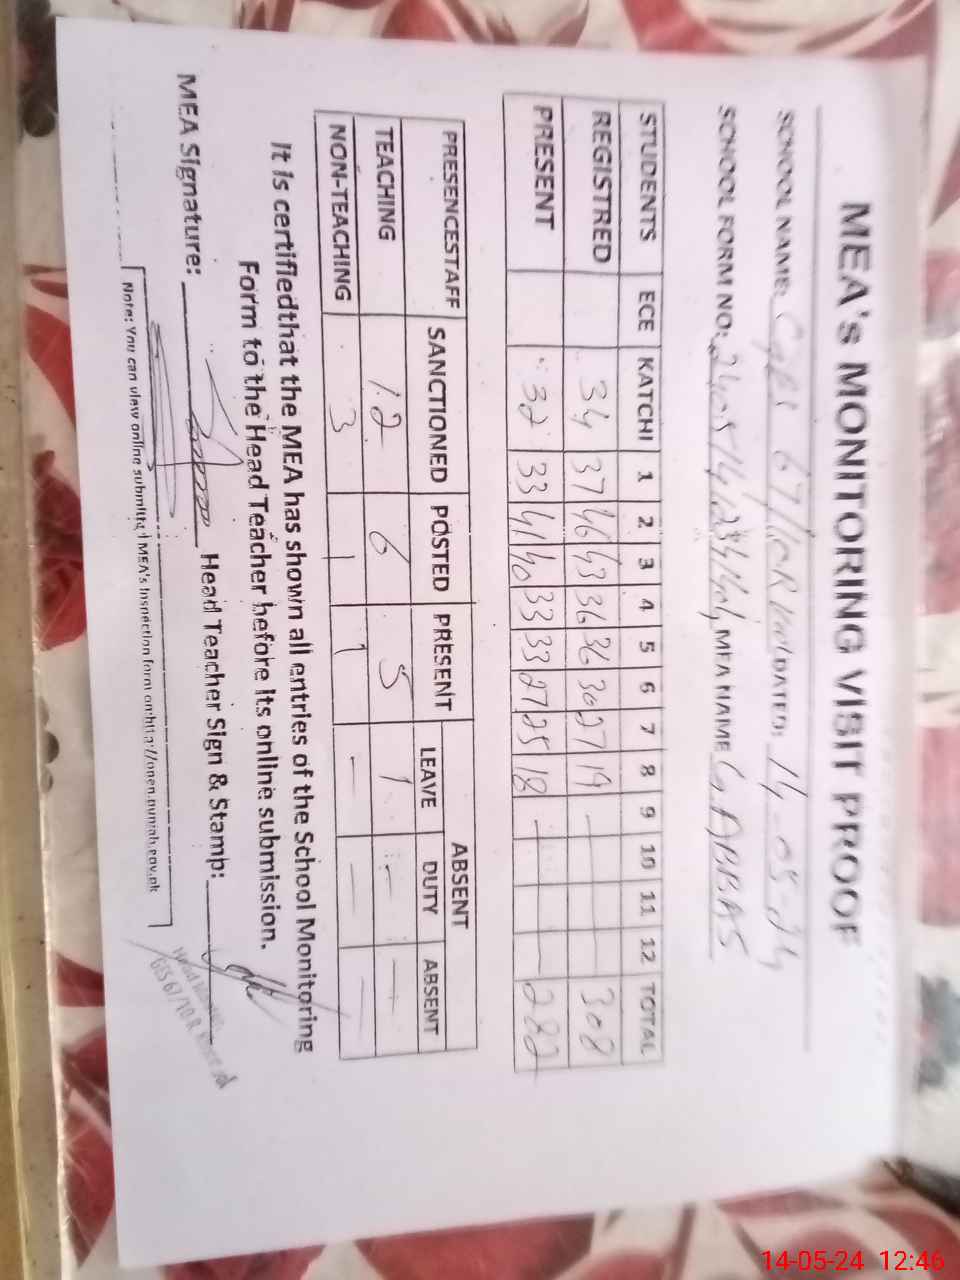 MEA's MONITORING VISIT PROOF
SCHOOL NAME: 67/10R DATED: 14-05-24
SCHOOL FORM NO: MEA NAME G. ABBAS
STUDENTS ECE KATCHI 1 2 3 4 5 6 7 8 9 10 11 12 TOTAL
REGISTRED 34 37 46 43 36 36 30 27 19 — — — — 308
PRESENT 32 33 41 40 33 33 27 25 18 — — — — 282
PRESENCESTAFF SANCTIONED POSTED PRESENT ABSENT
LEAVE DUTY ABSENT
TEACHING 12 6 5 1 — —
NON-TEACHING 3 1 1 — — —
It is certifiedthat the MEA has shown all entries of the School Monitoring
Form to the Head Teacher before its online submission.
MEA Signature: Head Teacher Sign & Stamp:
Note: You can view online submitted MEA's Inspection form on:http://open.punjab.gov.pk
14-05-24 12:46